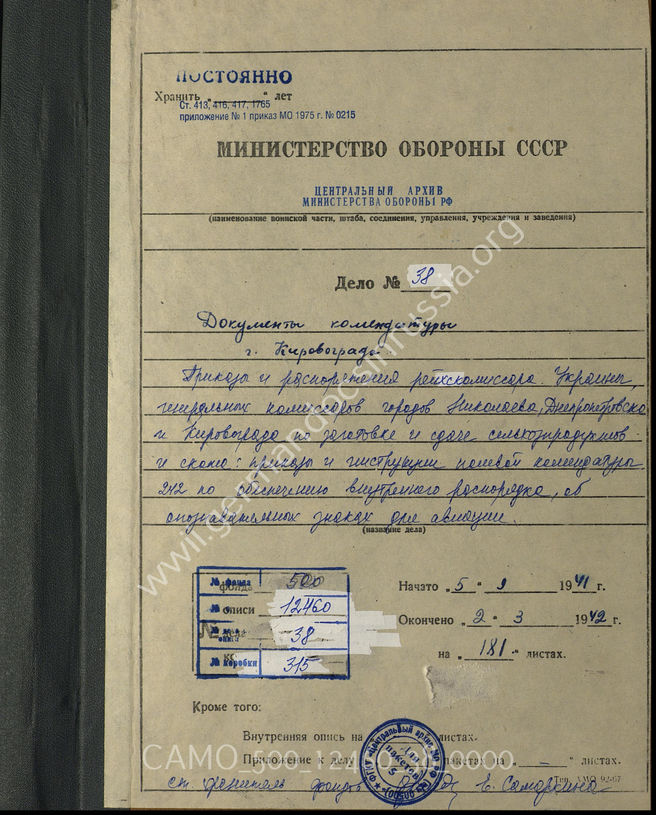 ПОСТОЯННО
Хранить „ “ лет
Ст. 413, 416, 417, 1765
приложение № 1 приказ МО 1975 г. № 0215
МИНИСТЕРСТВО ОБОРОНЫ СССР
ЦЕНТРАЛЬНЫЙ АРХИВ
МИНИСТЕРСТВА ОБОРОНЫ РФ
(наименование воинской части, штаба, соединения, управления, учреждения и заведения)
Дело № 38
Документы комендатуры
г. Кировограда.
Приказы и распоряжения рейхскомиссара Украины,
генеральных комиссаров городов Николаева, Днепропетровска
и Кировограда по заготовке и сдаче сельхозпродуктов
и скота: приказы и инструкции полевой комендатуры
242 по обеспечению внутреннего распорядка, об
опознавательных знаках для авиации.
(название дела)
№ фонда 500
№ описи 12460
№ дела 38
№ коробки 315
Начато „5“ 9 1941 г.
Окончено „2“ 3 1942 г.
на „181“ листах.
Кроме того:
Внутренняя опись на листах.
Приложение к делу пакетах на „ – “ листах.
Для пакетов 5
ст. хранитель фондов Е. Самарина
www.germandocsinrussia.org
CAMO_500_12460_38_0000